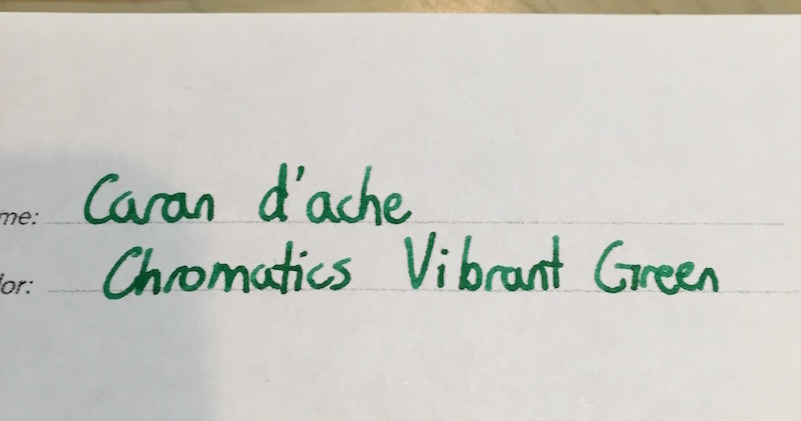 me: Caran d'ache
lor: Chromatics Vibrant Green